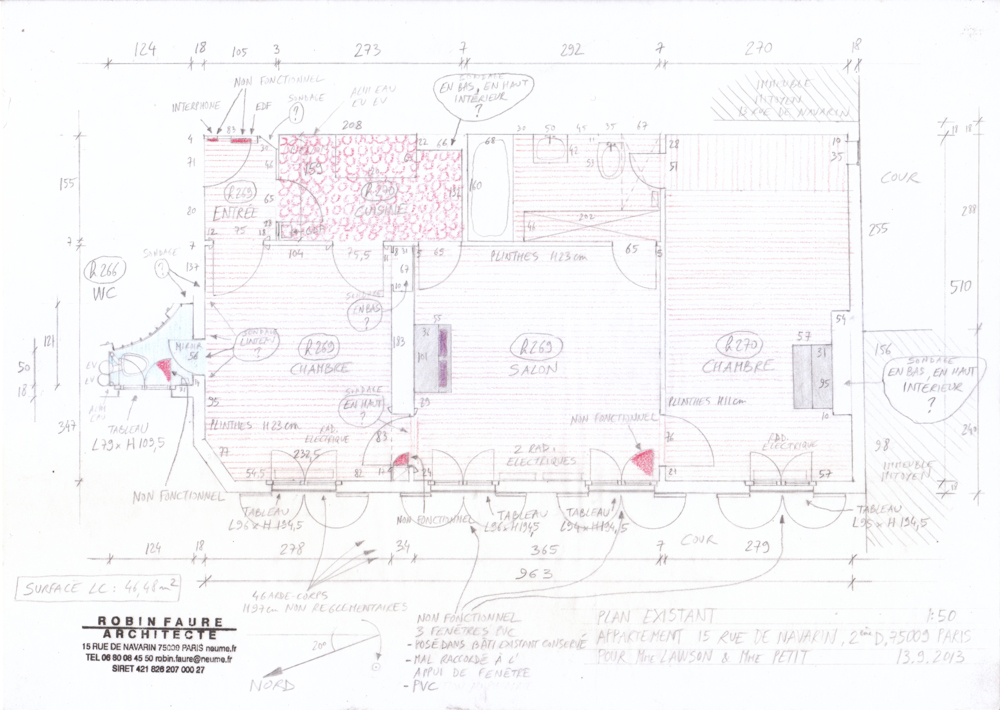 124 18 105 3 273 7 292 7 270 18
NON FONCTIONNEL
INTERPHONE
EDF
SONDAGE
?
ALIM EAU
EU EV
SONDAGE
EN BAS, EN HAUT
INTÉRIEUR
?
IMMEUBLE
MITOYEN
15 RUE DE NAVARIN
COUR
83
208
22 66
68
30 50 45 35 67
28
51
19
35
4
71
20
155
7
46
65
159
136
160
42
202
46
255
288
510
R 269
ENTRÉE
R 270
CUISINE
12 75 18
104
75,5
65
65
PLINTHES H 23 cm
SONDAGE
?
137
R 266
WC
67
SONDAGE
EN BAS
?
SONDAGE
?
MIROIR
56
121
50
18
347
R 269
CHAMBRE
183
55
36
101
R 269
SALON
R 270
CHAMBRE
54
57
31
95
10
156
SONDAGE
EN BAS, EN HAUT
INTERIEUR
?
EV
95
PLINTHES H 23 cm
SONDAGE
EN HAUT
?
29
NON FONCTIONNEL
PLINTHES H 11 cm
98
IMMEUBLE
MITOYEN
TABLEAU
L 79 x H 109,5
77
RAD.
ELECTRIQUE
232,5
54,5
82
83
24
2 RAD.
ELECTRIQUES
76
21
RAD.
ELECTRIQUE
57
NON FONCTIONNEL
TABLEAU
L 96 x H 194,5
NON FONCTIONNEL
TABLEAU
L 96 x H 194,5
TABLEAU
L 94 x H 194,5
TABLEAU
L 95 x H 194,5
COUR
124 18 278 34 365 7 279
963
SURFACE LC : 46,48 m²
4 GARDE-CORPS
H 97 cm NON REGLEMENTAIRES
ROBIN FAURE
ARCHITECTE
15 RUE DE NAVARIN 75009 PARIS neume.fr
TEL 06 80 08 45 50 robin.faure@neume.fr
SIRET 421 826 207 000 27
20°
NORD
NON FONCTIONNEL
3 FENÊTRES PVC
- POSÉ DANS BÂTI EXISTANT CONSERVÉ
- MAL RACCORDÉ À L'
APPUI DE FENÊTRE
- PVC
PLAN EXISTANT 1:50
APPARTEMENT 15 RUE DE NAVARIN, 2ème D, 75009 PARIS
POUR Mme LAWSON & Mme PETIT 13.9.2013